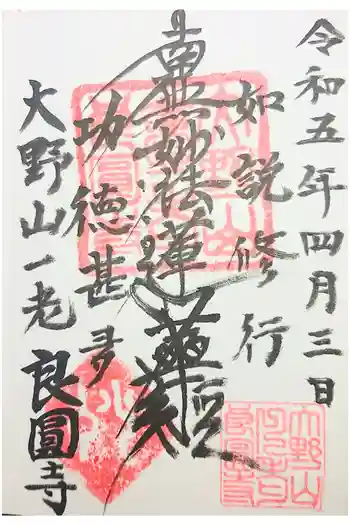 令和五年四月三日
如説修行
南無妙法蓮華経
功徳甚多
大野山一老 良圓寺